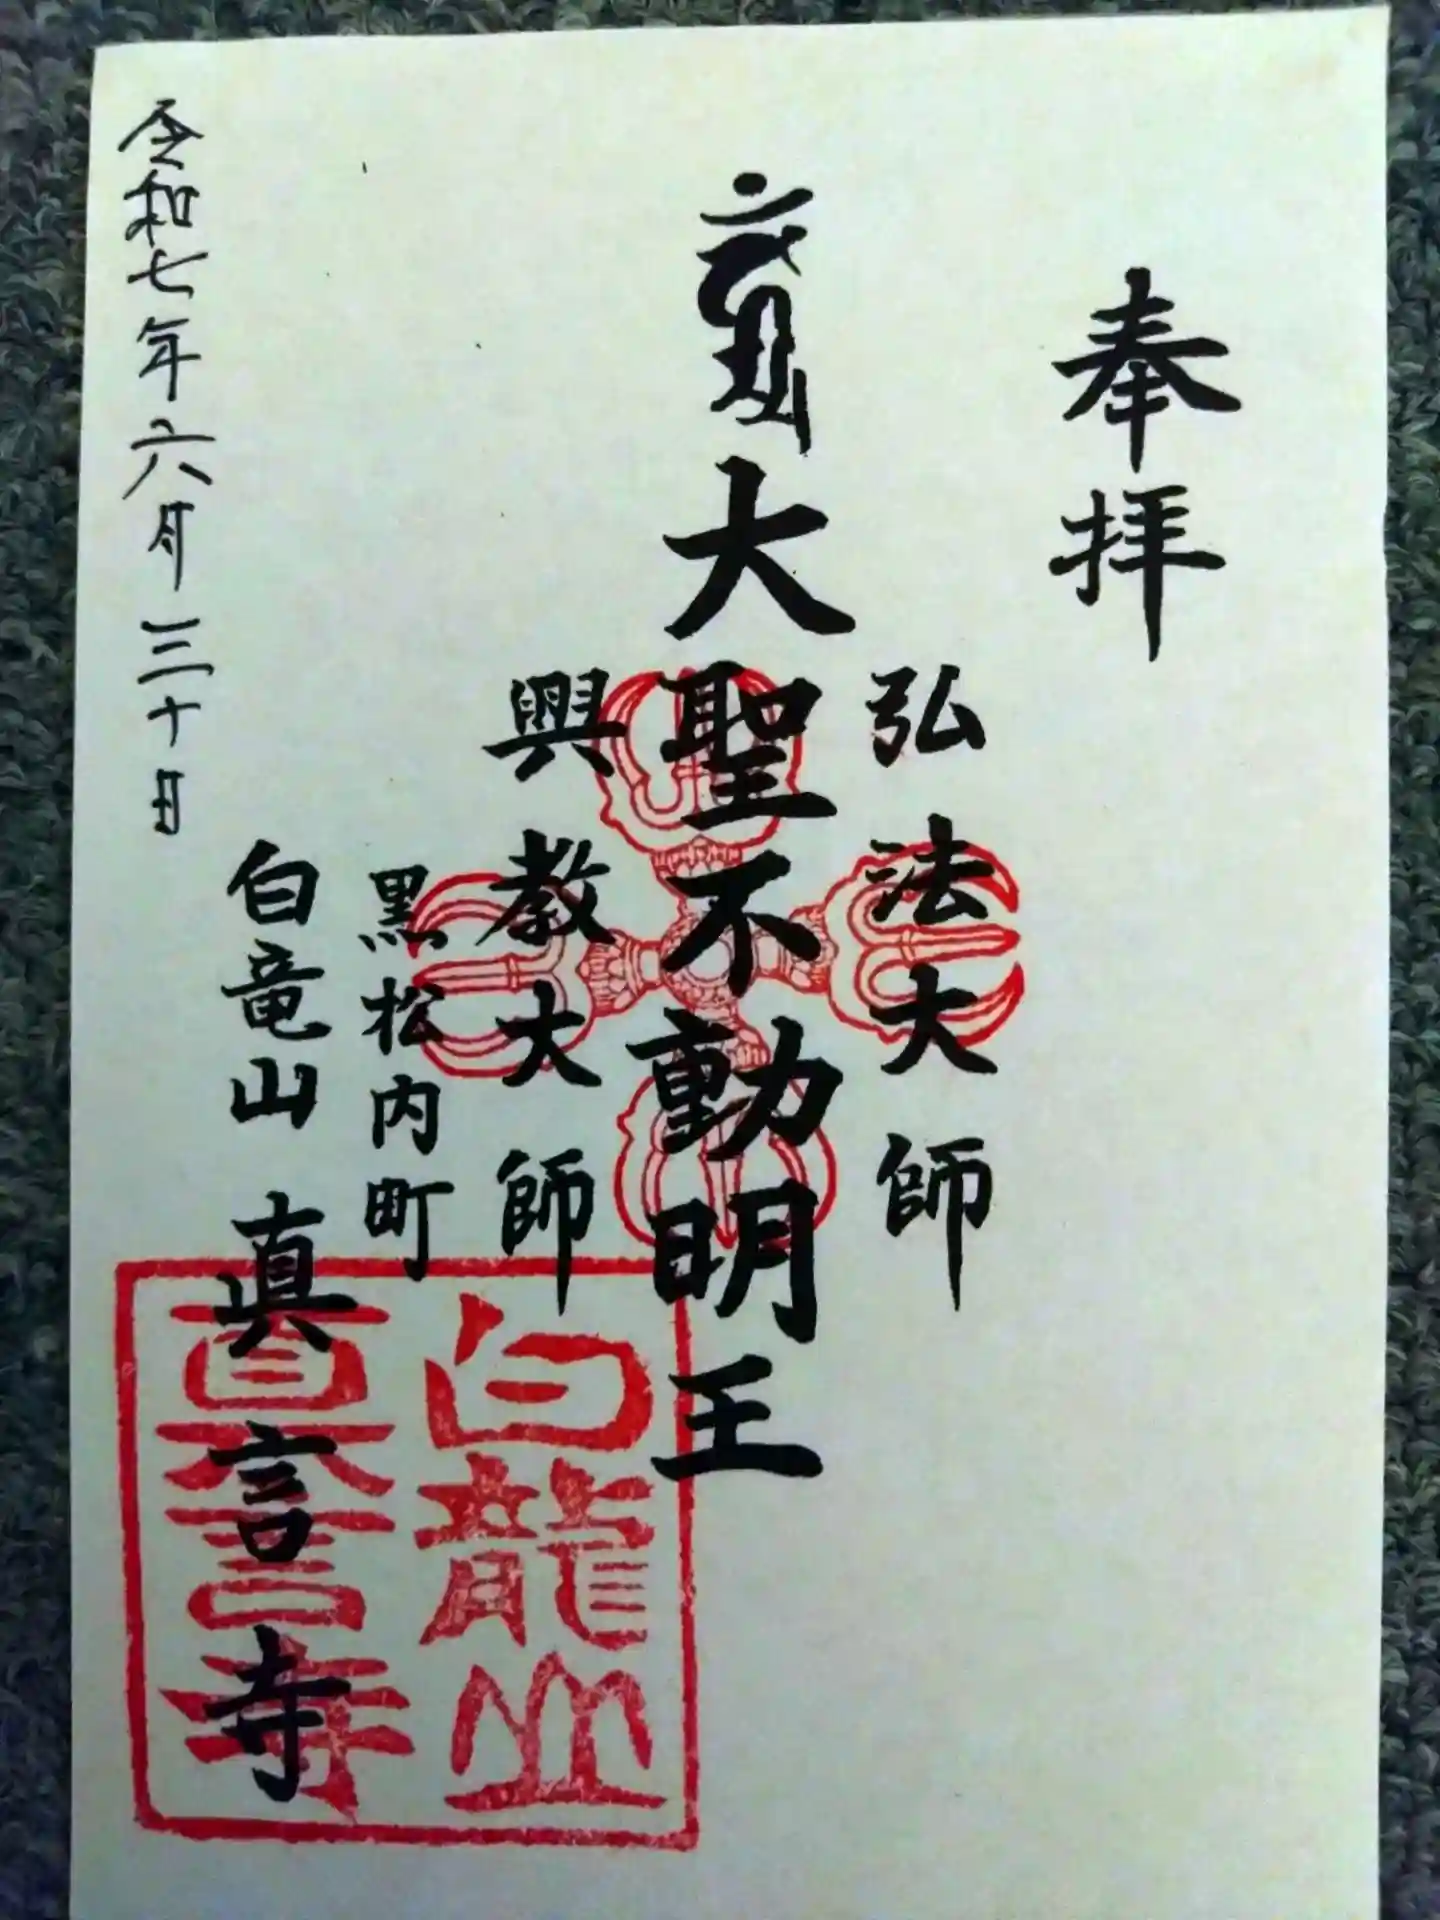 奉拝
弘法大師
大聖不動明王
興教大師
黒松内町
白竜山 真言寺
令和七年六月三十日
白龍山
真言寺